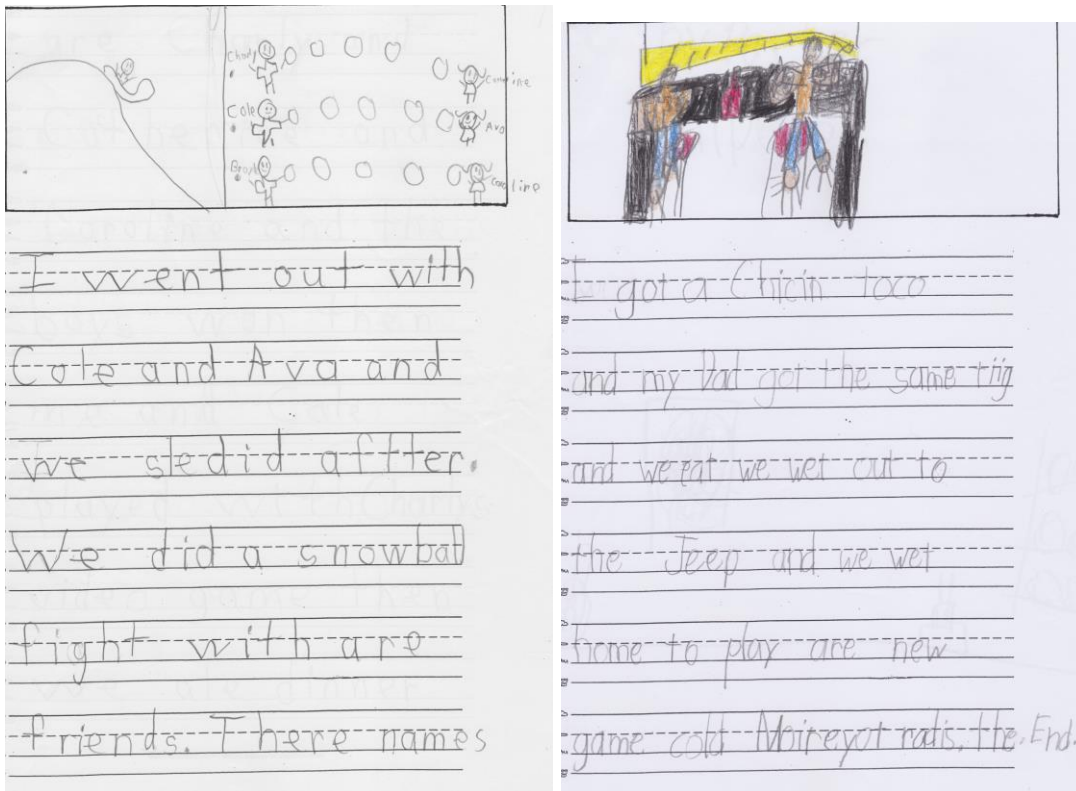 Charly
Cole
Brayd
Catherine
Ava
Caroline
I went out with
Cole and Ava and
we sledid aftter.
We did a snowball
fight with are
friends. There names
I got a Chicin taco
and my Dad got the same tiig
and we eat we wet out to
the Jeep and we wet
home to play are new
game cold
the. End.